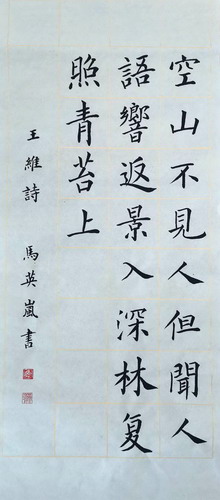 空山不見人但聞人
語響返景入深林复
照青苔上
王維詩 馬英嵐書